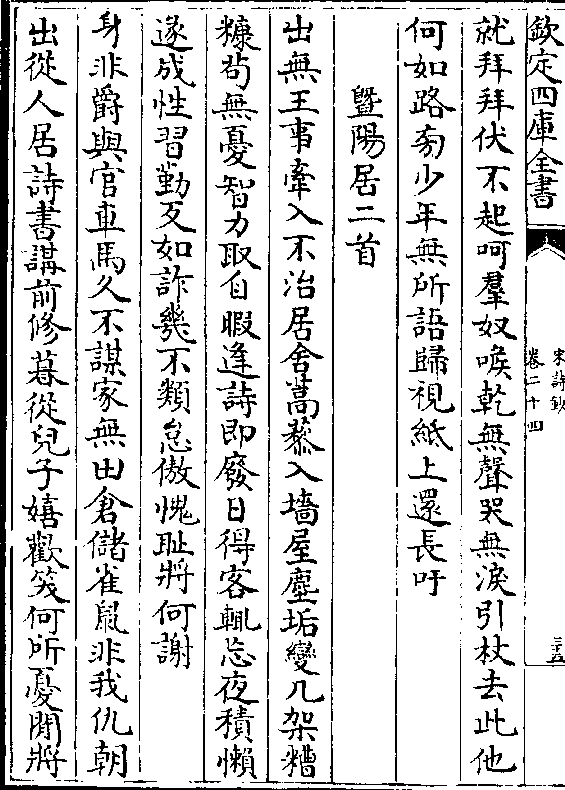 欽定四庫全書
宋詩鈔
卷二十四
三五
就拜拜伏不起呵羣奴喉乾無聲哭無淚引杖去此他
何如路旁少年無所語歸視紙上還長吁
曁陽居二首
出無王事牽入不治居舍蒿藜入墻屋塵垢變几架糟
糠茍無憂智力取自暇逢詩即廢日得客輒忘夜積懶
遂成性習勤反如詐幾不類怠傲愧耻將何謝
身非爵與官車馬久不謀家無田倉儲雀鼠非我仇朝
出從人居詩書講前修暮從兒子嬉歡笑何所憂閒將